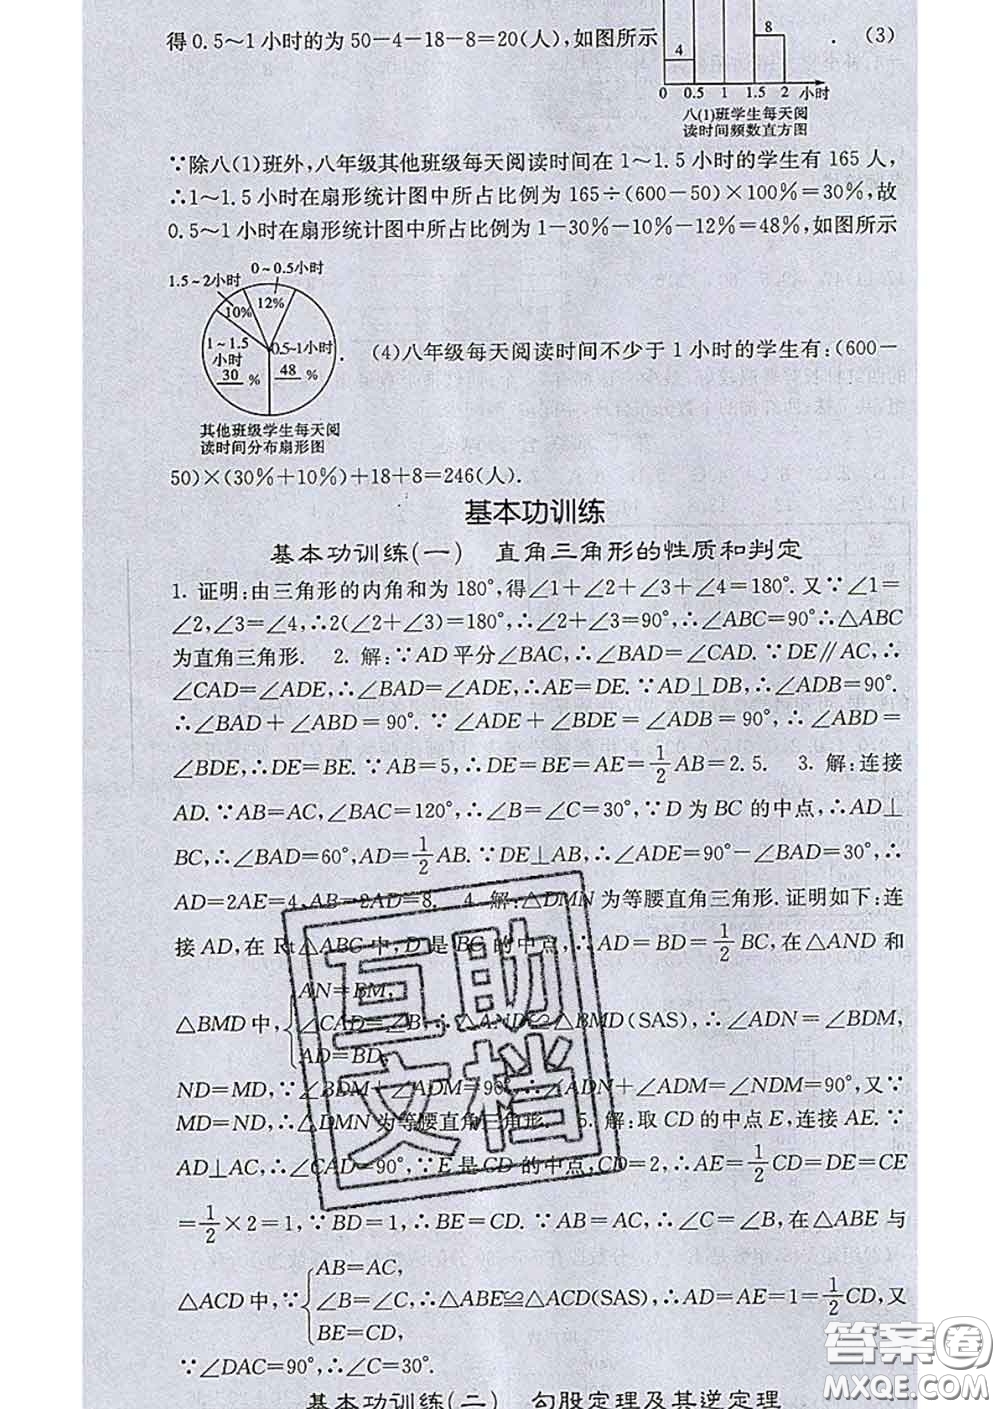 得0.5～1小时的为50－4－18－8＝20(人),如图所示
4
8
0 0.5 1 1.5 2 小时
八(1)班学生每天阅
读时间频数直方图
. (3)
∵除八(1)班外,八年级其他班级每天阅读时间在1～1.5小时的学生有165人,
∴1～1.5小时在扇形统计图中所占比例为165÷(600－50)×100%＝30%,故
0.5～1小时在扇形统计图中所占比例为1－30%－10%－12%＝48%,如图所示
0～0.5小时
1.5～2小时
10%
12%
1～1.5
小时
30 %
0.5~1小时
48 %
其他班级学生每天阅
读时间分布扇形图
. (4)八年级每天阅读时间不少于1小时的学生有:(600－
50)×(30%＋10%)＋18＋8＝246(人).
基本功训练
基本功训练(一) 直角三角形的性质和判定
1. 证明:由三角形的内角和为180°,得∠1＋∠2＋∠3＋∠4＝180°.又∵∠1＝
∠2,∠3＝∠4,∴2(∠2＋∠3)＝180°,∴∠2＋∠3＝90°,∴∠ABC＝90°∴△ABC
为直角三角形. 2. 解:∵AD平分∠BAC,∴∠BAD＝∠CAD.∵DE∥AC,∴
∠CAD＝∠ADE,∴∠BAD＝∠ADE,∴AE＝DE.∵AD⊥DB,∴∠ADB＝90°.
∴∠BAD＋∠ABD＝90°.∵∠ADE＋∠BDE＝∠ADB＝90°,∴∠ABD＝
∠BDE,∴DE＝BE.∵AB＝5,∴DE＝BE＝AE＝1/2AB＝2.5. 3. 解:连接
AD.∵AB＝AC,∠BAC＝120°,∴∠B＝∠C＝30°,∵D为BC的中点,∴AD⊥
BC,∴∠BAD＝60°,AD＝1/2AB.∵DE⊥AB,∴∠ADE＝90°－∠BAD＝30°,∴
AD＝2AE＝4,AB＝2AD＝8. 4. 解:△DMN为等腰直角三角形.证明如下:连
接AD,在Rt△ABC中,D是BC的中点,∴AD＝BD＝1/2BC,在△AND和
AN＝BM,
△BMD中,∵{∠CAD＝∠B,∴△AND≌△BMD(SAS),∴∠ADN＝∠BDM,
AD＝BD,
ND＝MD,∵∠BDM＋∠ADM＝90°,∴∠ADN＋∠ADM＝∠NDM＝90°,又∵
MD＝ND,∴△DMN为等腰直角三角形. 5. 解:取CD的中点E,连接AE.∵
AD⊥AC,∴∠CAD＝90°,∵E是CD的中点,CD＝2,∴AE＝1/2CD＝DE＝CE
＝1/2×2＝1,∵BD＝1,∴BE＝CD.∵AB＝AC,∴∠C＝∠B,在△ABE与
AB＝AC,
△ACD中,∵{∠B＝∠C,∴△ABE≌△ACD(SAS),∴AD＝AE＝1＝1/2CD,又
BE＝CD,
∵∠DAC＝90°,∴∠C＝30°.
基本功训练(二) 勾股定理及其逆定理
互助
文档
答案卷
MXQE.COM